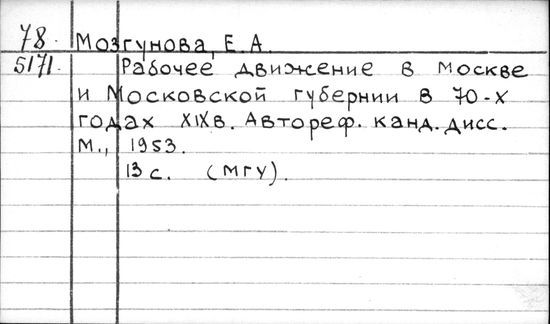 78. Мозгунова, Е.А.
5171. Рабочее движение в Москве
и Московской губернии в 70-х
годах XIXв. Автореф. канд. дисс.
М., 1953.
13 с. (МГУ).